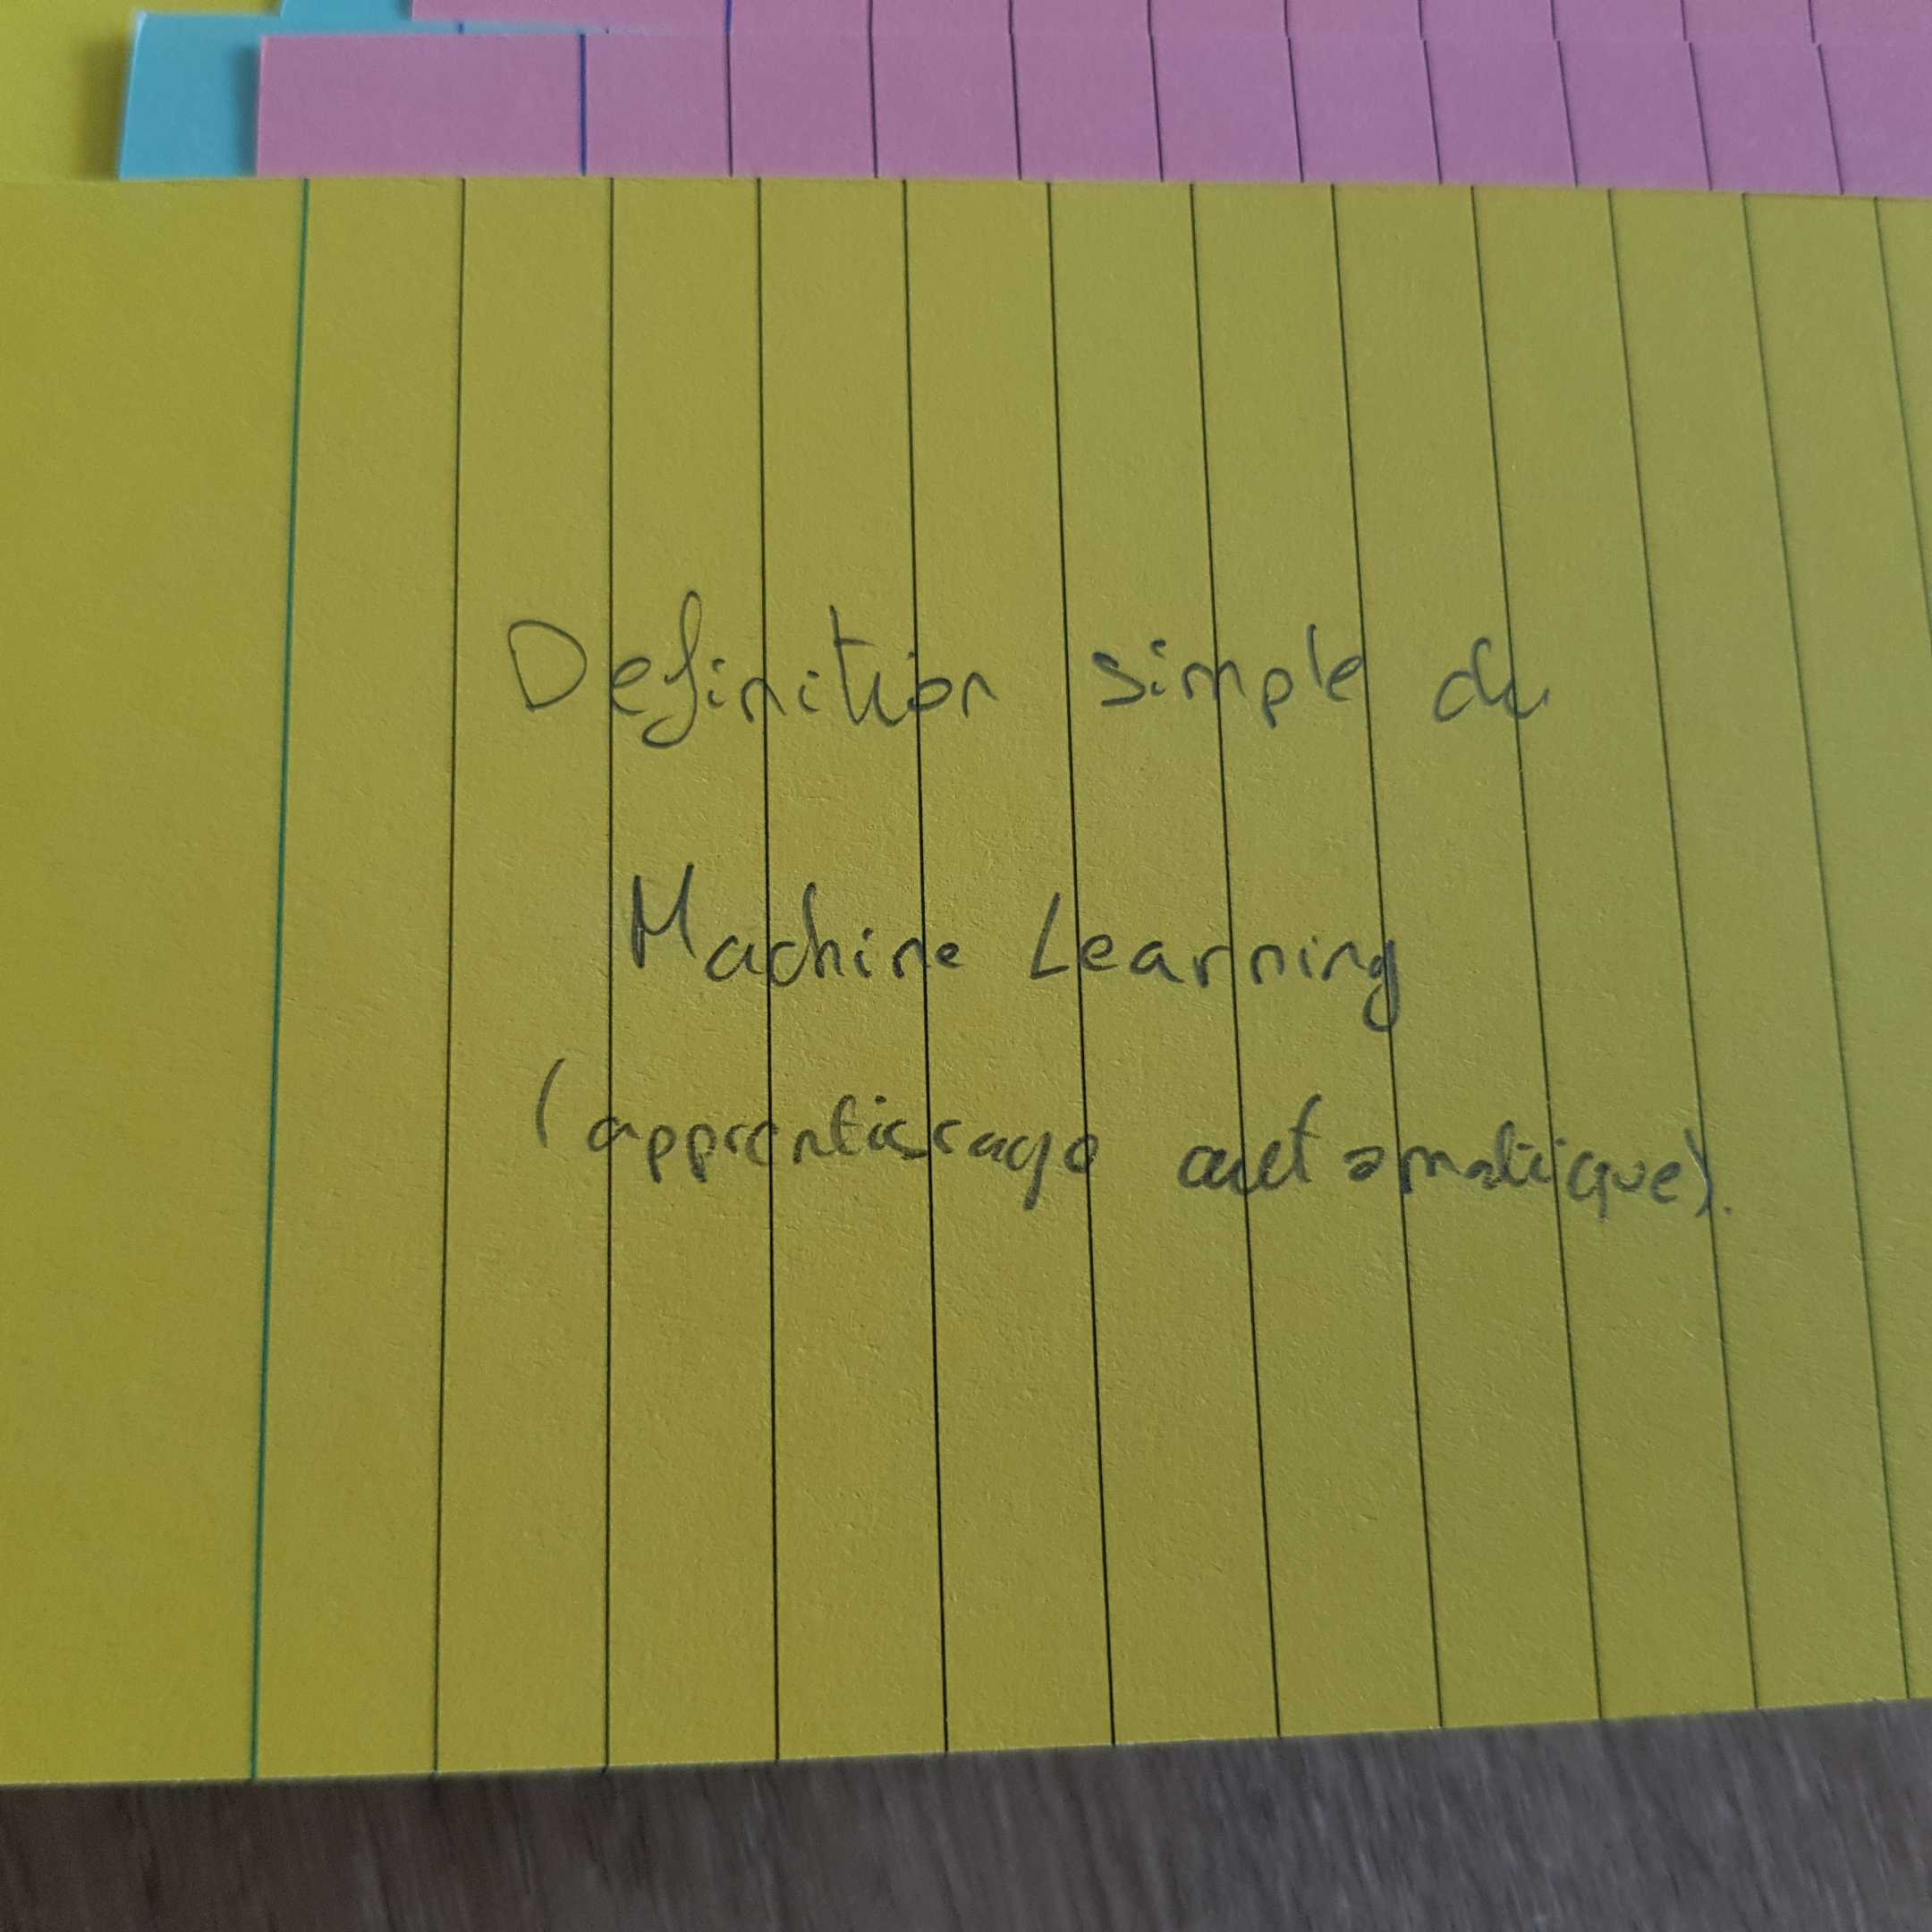 Definition simple du
Machine Learning
(apprentissage automatique).